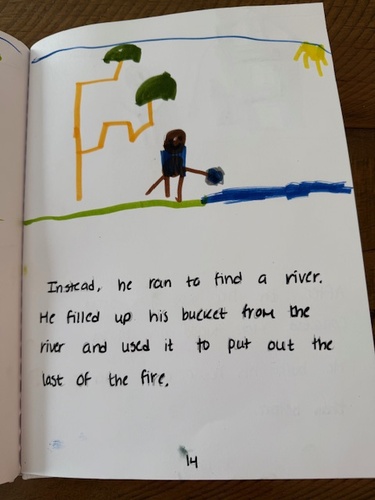 Instead, he ran to find a river.
He filled up his bucket from the
river and used it to put out the
last of the fire.
14